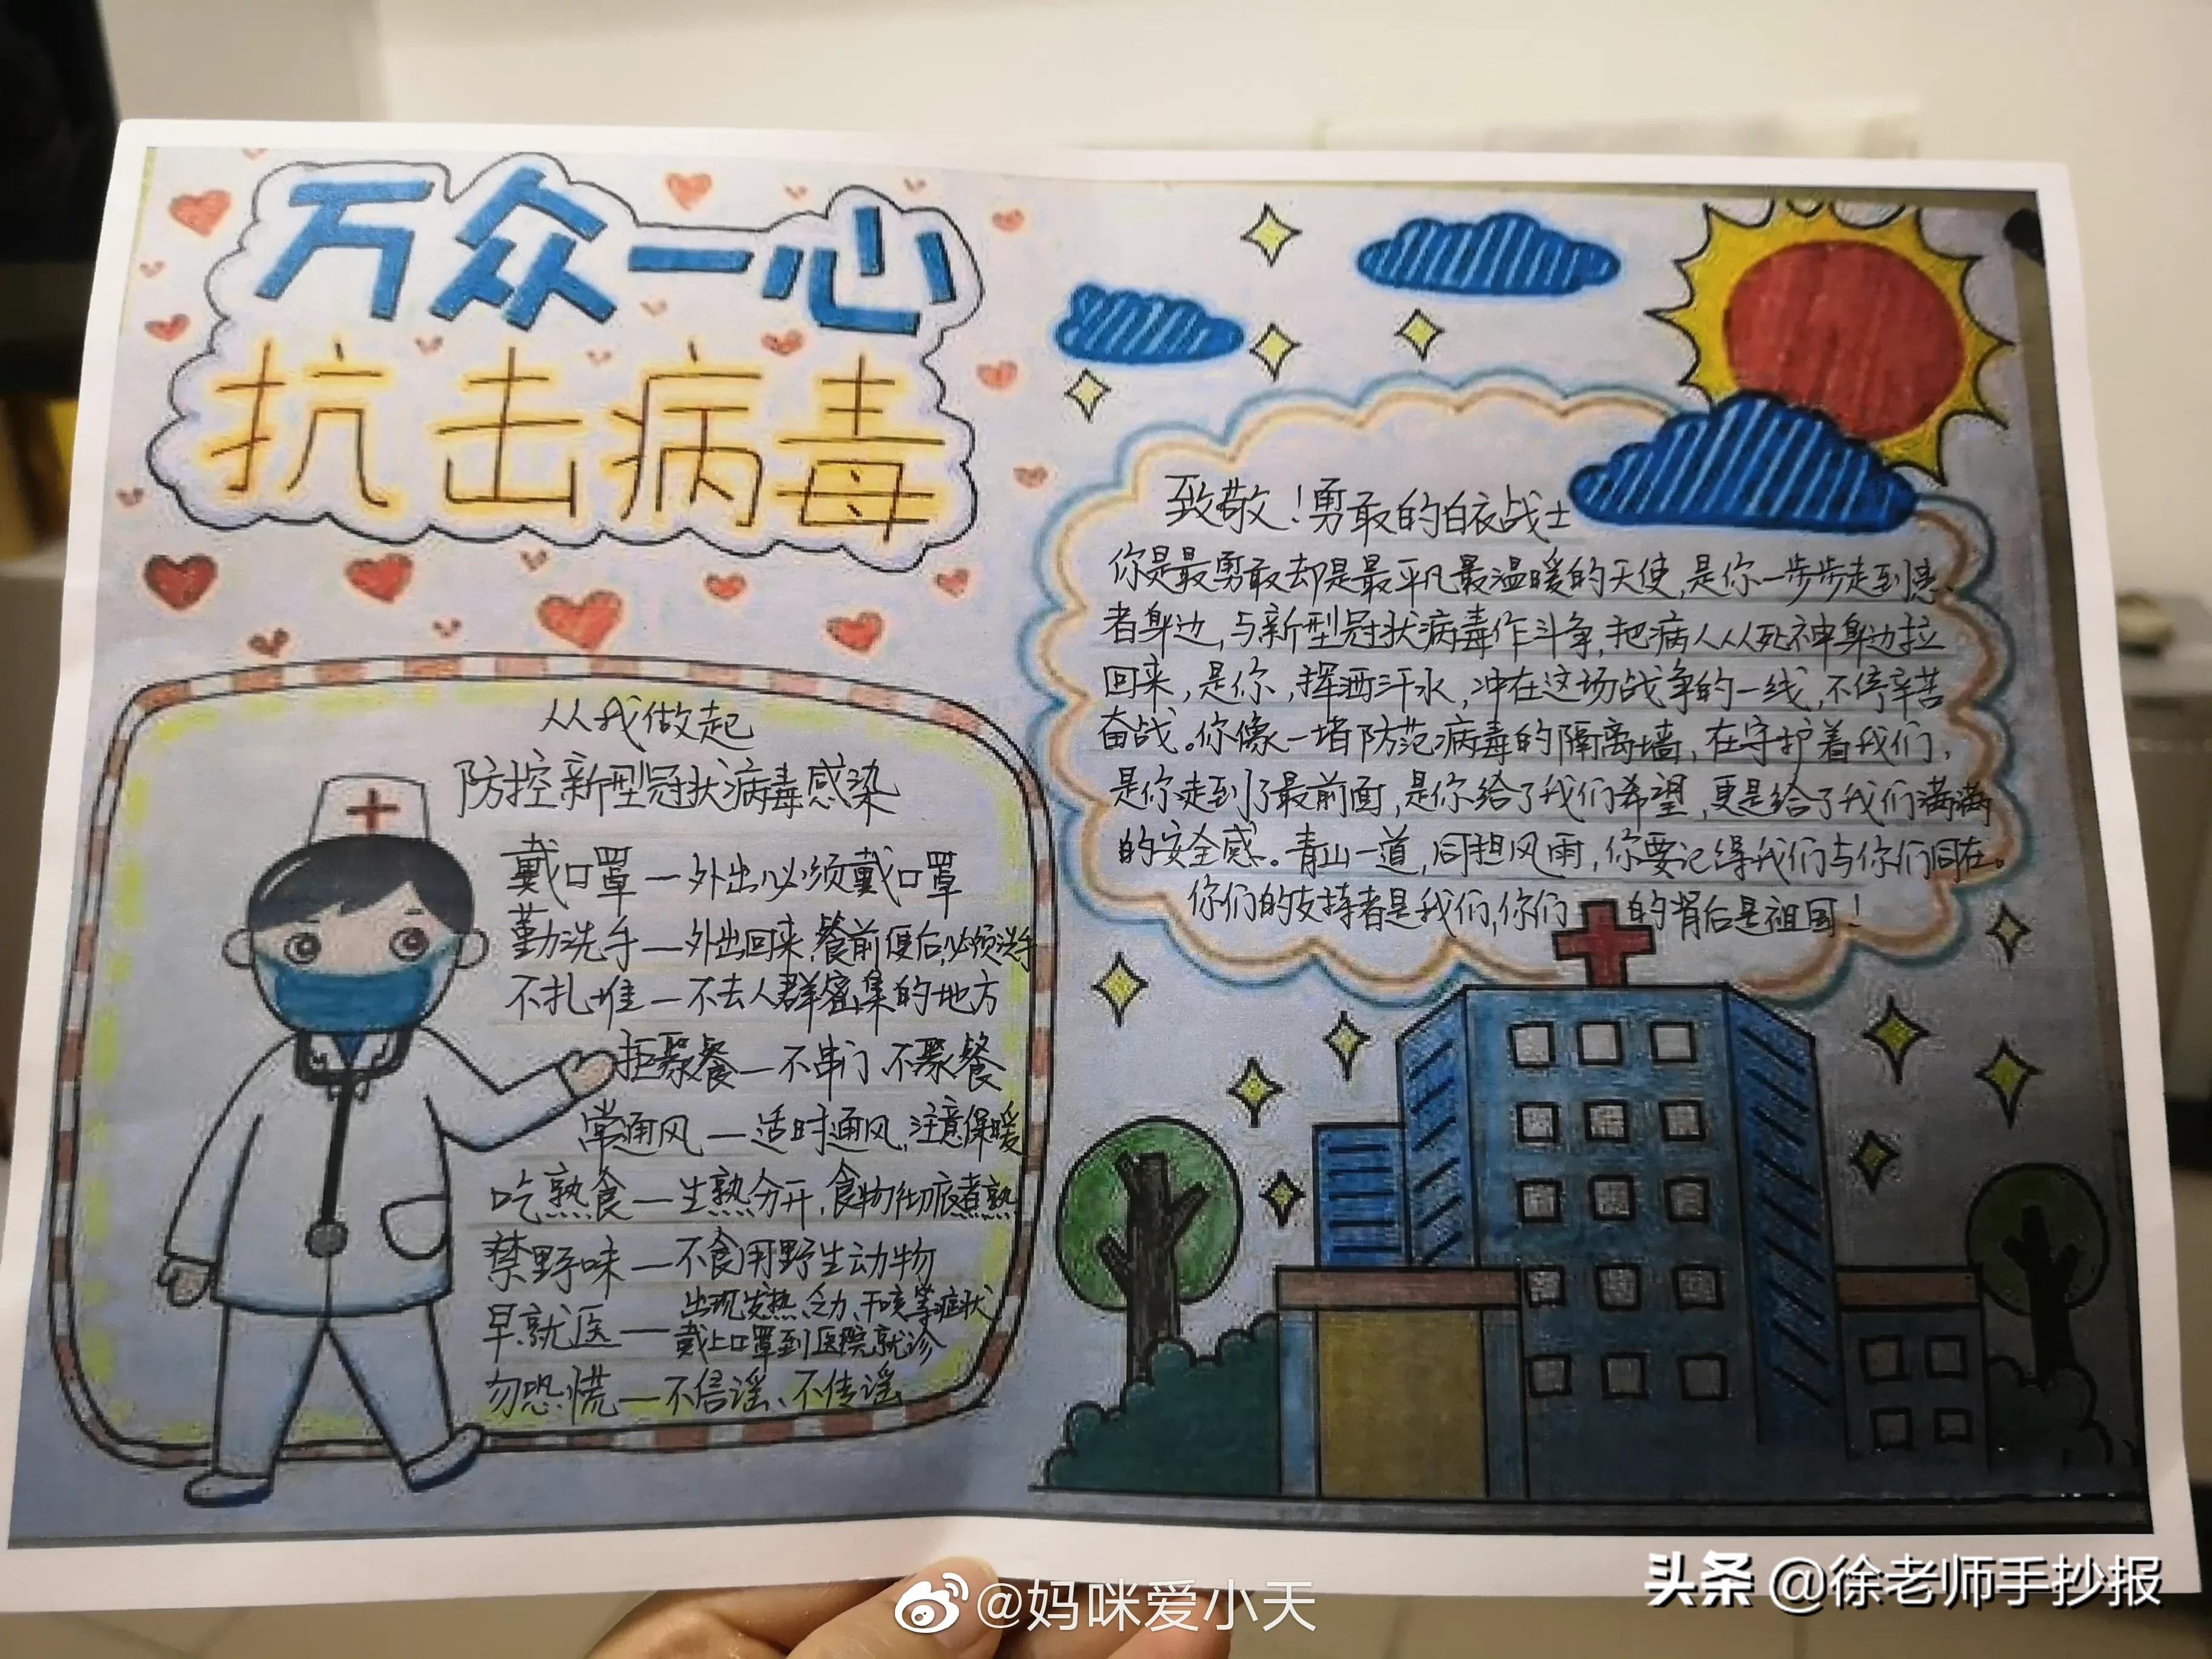 万众一心
抗击病毒
从我做起
防控新型冠状病毒感染
戴口罩—外出必须戴口罩
勤洗手—外出回来,餐前便后,必须洗手
不扎堆—不去人群密集的地方
拒聚餐—不串门、不聚餐
常通风—适时通风,注意保暖
吃熟食—生熟分开,食物彻底煮熟
禁野味—不食用野生动物
早就医—出现发热、乏力、干咳等症状
戴上口罩到医院就诊
勿恐慌—不信谣、不传谣
致敬!勇敢的白衣战士
你是最勇敢却是最平凡最温暖的天使,是你一步步走到患
者身边,与新型冠状病毒作斗争,把病人从死神身边拉
回来,是你,挥洒汗水,冲在这场战争的一线,不停辛苦
奋战。你像一堵防范病毒的隔离墙,在守护着我们,
是你走到了最前面,是你给了我们希望,更是给了我们满满
的安全感。青山一道,同担风雨,你要记得我们与你们同在。
你们的支持者是我们,你们的背后是祖国!
@妈咪爱小天
头条 @徐老师手抄报